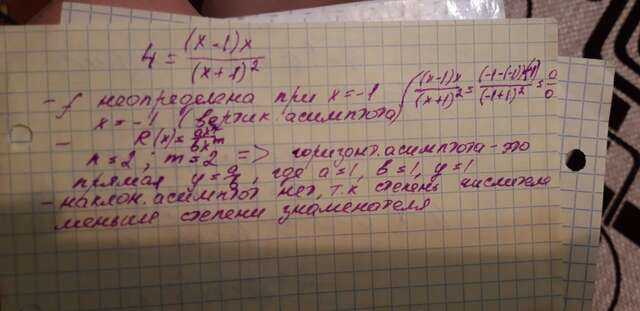 4 = (x-1)x / (x+1)²
- f неопределена при x=-1 ( (x-1)x / (x+1)² = (-1-(-1))(-1) / (-1+1)² = 0/0
x = -1 (вертик. асимптота)
- R(x) = axⁿ / bxᵐ
n = 2 ; m = 2 => горизонт. асимптота - это
прямая y = a/b, где a = 1, b = 1, y = 1
- наклон. асимптот нет, т.к степень числителя
меньше степени знаменателя